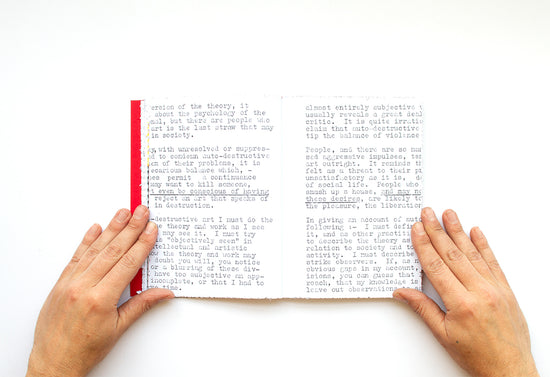 ersion of the theory, it
about the psychology of the
al, but there are people who
art is the last straw that may
in society.
y, with unresolved or suppres-
d to condemn auto-destructive
n of their problems, it is
ecarious balance which, -
es permit a continuance
may want to kill someone,
t even be conscious of having
reject an art that speaks of
in destruction.
-destructive art I must do the
he theory and work as I see
may see it. I must try
is "objectively seen" in
tellectual and artistic
ow the theory and work may
doubt you will, you notice
or a blurring of these div-
have too subjective an app-
incomplete, or that I had to
ne time.
almost entirely subjective
usually reveals a great deal
critic. It is quite irratio
claim that auto-destructive
tip the balance of violence
People, and there are so man
sed aggressive impulses, ten
art outright. It reminds th
felt as a threat to their p
unsatisfactory as it is, d
of social life. People who
smash up a house, and may n
these desires, are likely to
the pleasure, the liberation
In giving an account of auto
following :- I must defin
it, and as other practitio
to describe the theory as
relation to society and to
activity. I must describe
strike observers. If, as n
obvious gaps in my account,
isions, you can guess that
roach, that my knowledge is
leave out observations